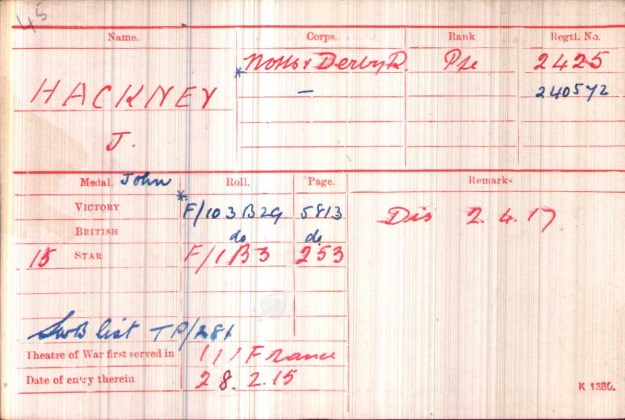 45
Name. Corps. Rank Regtl. No.
HACKNEY * Notts & Derby R. Pte 2425
— 240572
J.
Medal. John Roll. Page. Remarks
VICTORY * F/103 B29 5813 Dis 2.4.17
BRITISH do do
15 STAR F/1B3 253
SWB list TP/281
Theatre of War first served in 111 France
Date of entry therein 28.2.15
K 1380.